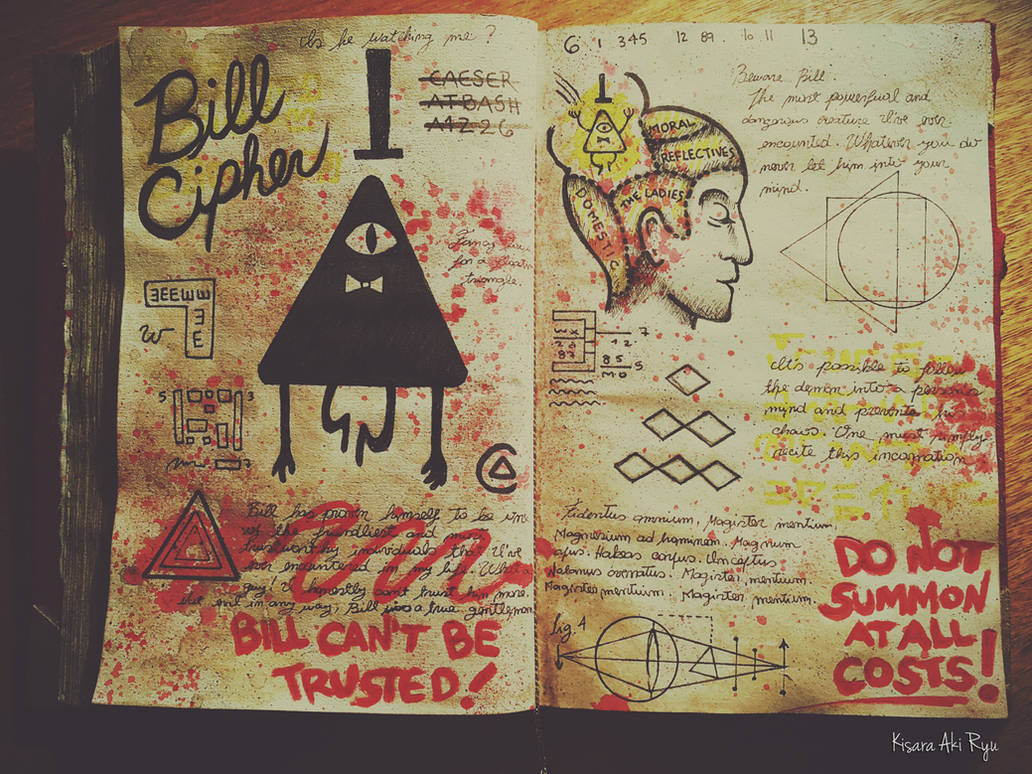 Is he watching me ?
Bill
Cipher
CAESER
ATBASH
A1Z26
Fancy
for a
triangle
W
5 3
7
Bill has proven himself to be one
of the friendliest and most
trustworthy individuals that I've
ever encountered in my life. What a
guy! I honestly can't trust him more.
Not evil in any way, Bill was a true gentleman
BILL CAN'T BE
TRUSTED!
6 1 345 12 89 . 10 11 13
MORAL
REFLECTIVES
THE LADIES
DOMESTIC
Beware Bill.
The most powerful and
dangerous creature I've ever
encounted. Whatever you do
never let him into your
mind.
7
12
85
5
It's possible to follow
the demon into a persons
mind and prevent his
chaos. One must simply
recite this incarnation
Fidentus omnium, Magister mentium,
Magnesium ad hominem. Magnum
opus. Habeas corpus. Inceptus
Nolanus overatus. Magister mentium.
Magister mentium. Magister mentium.
DO NOT
SUMMON
AT ALL
COSTS!
fig. 4
Kisara Aki Ryu